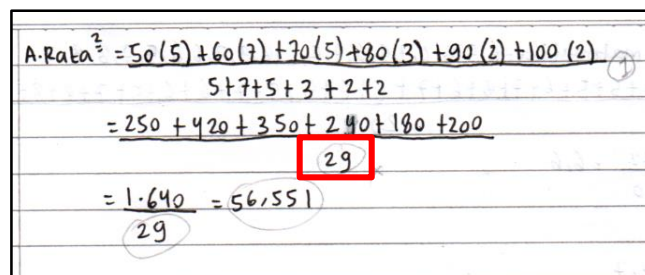 A.Rata² = 50(5)+60(7)+70(5)+80(3)+90(2)+100(2)
5+7+5+3+2+2
= 250 + 420 + 350 + 240 + 180 + 200
29
= 1.640 = 56,551
29
1